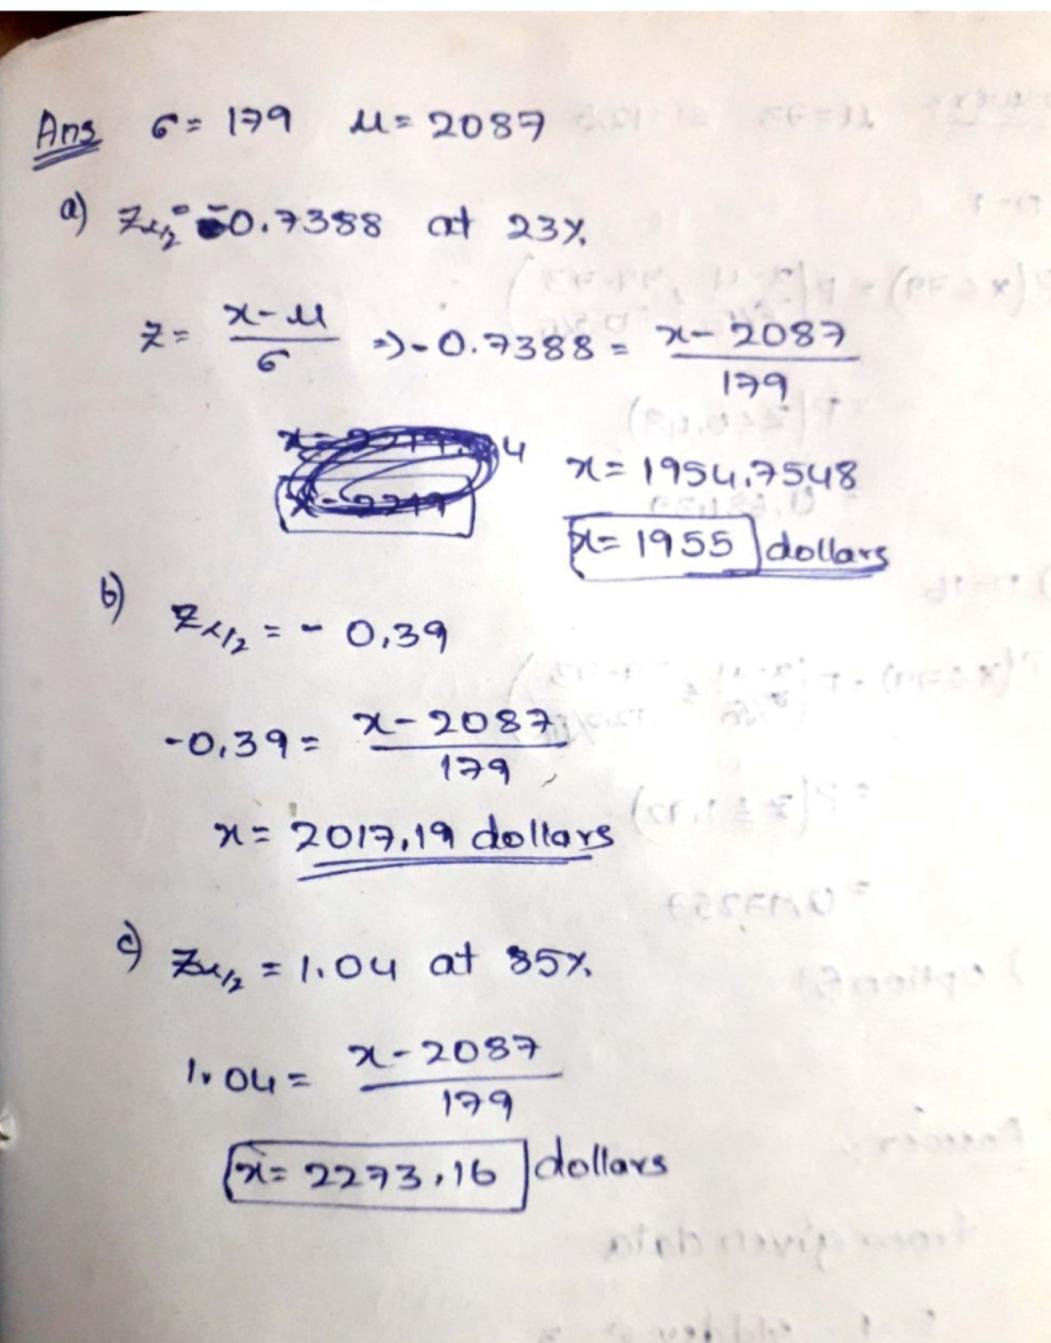 Ans σ = 179 μ = 2087
a) Zα/2 = -0.7388 at 23%
z = x-μ/σ => -0.7388 = x-2087/179
x = 1954.7548
x = 1955 dollars
b) Zα/2 = - 0.39
-0.39 = x-2087/179
x = 2017.19 dollars
c) Zα/2 = 1.04 at 85%
1.04 = x-2087/179
x = 2273.16 dollars